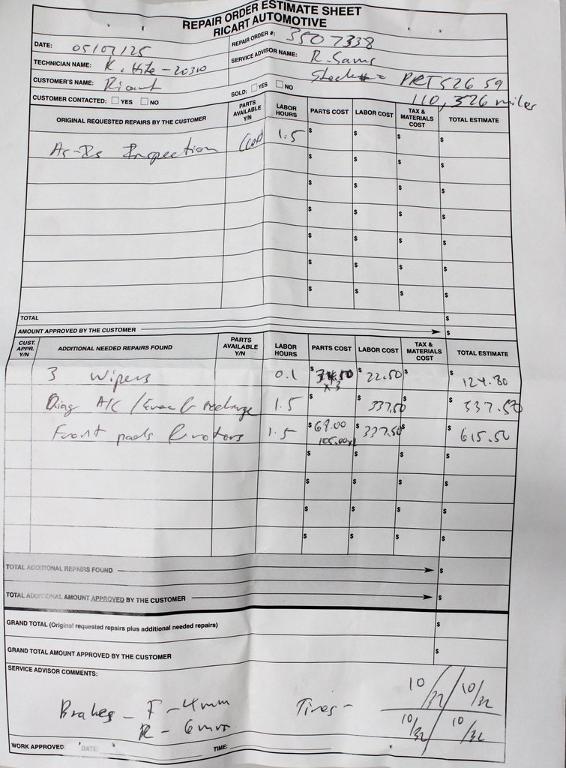 REPAIR ORDER ESTIMATE SHEET
RICART AUTOMOTIVE
DATE: 05/07/25 REPAIR ORDER #: 5507338
TECHNICIAN NAME: K. Hite - 20310 SERVICE ADVISOR NAME: R. Sams
CUSTOMER'S NAME: Ricart Stock# = PRT52659
CUSTOMER CONTACTED: YES NO SOLD: YES NO 110,326 miles
ORIGINAL REQUESTED REPAIRS BY THE CUSTOMER PARTS AVAILABLE Y/N LABOR HOURS PARTS COST LABOR COST TAX & MATERIALS COST TOTAL ESTIMATE
As-Is Inspection 1.5 $ $ $ $
$ $ $ $
$ $ $ $
$ $ $ $
$ $ $ $
$ $ $ $
$ $ $ $
TOTAL $
AMOUNT APPROVED BY THE CUSTOMER $
CUST. APPR. Y/N ADDITIONAL NEEDED REPAIRS FOUND PARTS AVAILABLE Y/N LABOR HOURS PARTS COST LABOR COST TAX & MATERIALS COST TOTAL ESTIMATE
3 wipers 0.1 $ x3 $ 22.50 $ $ 124.80
Diag A/C / Evac & recharge 1.5 $ $ 337.50 $ $ 337.50
Front pads & rotors 1.5 $ 69.00 105.00 $ 337.50 $ $ 615.50
$ $ $ $
$ $ $ $
$ $ $ $
$ $ $ $
TOTAL ADDITIONAL REPAIRS FOUND $
TOTAL ADDITIONAL AMOUNT APPROVED BY THE CUSTOMER $
GRAND TOTAL (Original requested repairs plus additional needed repairs) $
GRAND TOTAL AMOUNT APPROVED BY THE CUSTOMER $
SERVICE ADVISOR COMMENTS:
Brakes - F - 4mm Tires - 10/32 10/32
R - 6mm 10/32 10/32
WORK APPROVED: DATE: TIME: